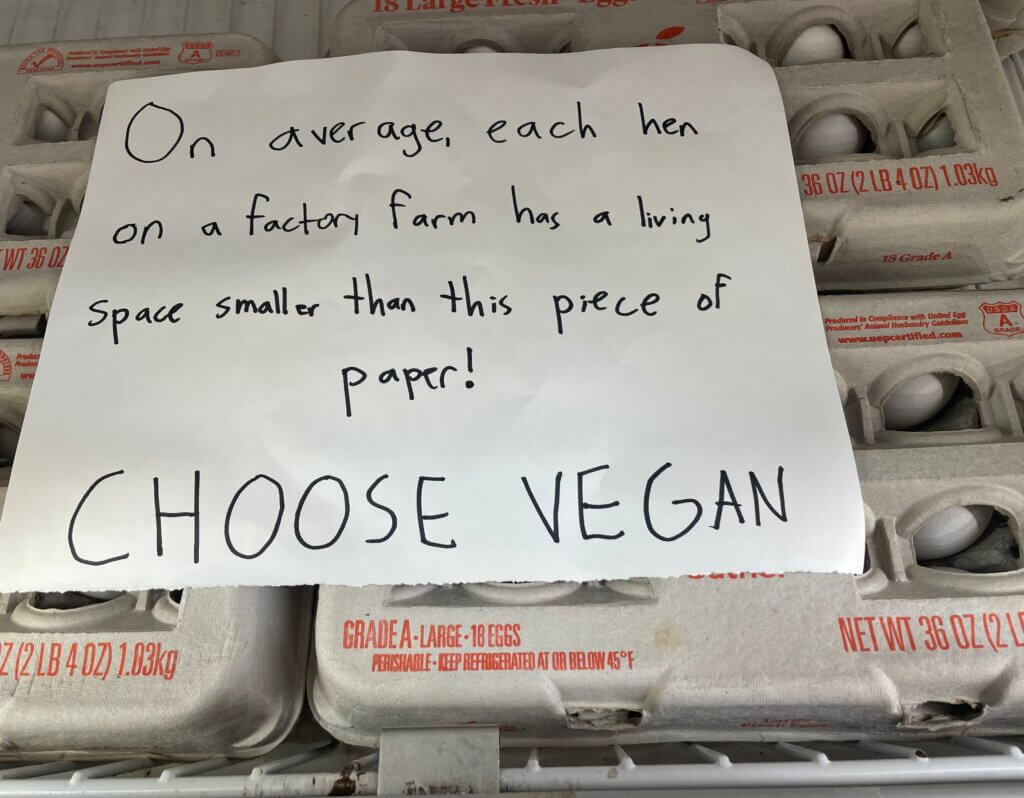 18 Large Fresh Eggs
Produced in Compliance with United Egg
Producers' Animal Husbandry Guidelines
www.uepcertified.com
USDA
A
GRADE
On average, each hen
on a factory farm has a living
space smaller than this piece of
paper!
CHOOSE VEGAN
36 OZ (2 LB 4 OZ) 1.03kg
18 Grade A
WT 36 OZ
Produced in Compliance with United Egg
Producers' Animal Husbandry Guidelines
www.uepcertified.com
USDA
A
GRADE
Z (2 LB 4 OZ) 1.03kg
GRADE A • LARGE • 18 EGGS
PERISHABLE • KEEP REFRIGERATED AT OR BELOW 45°F
NET WT 36 OZ (2 L